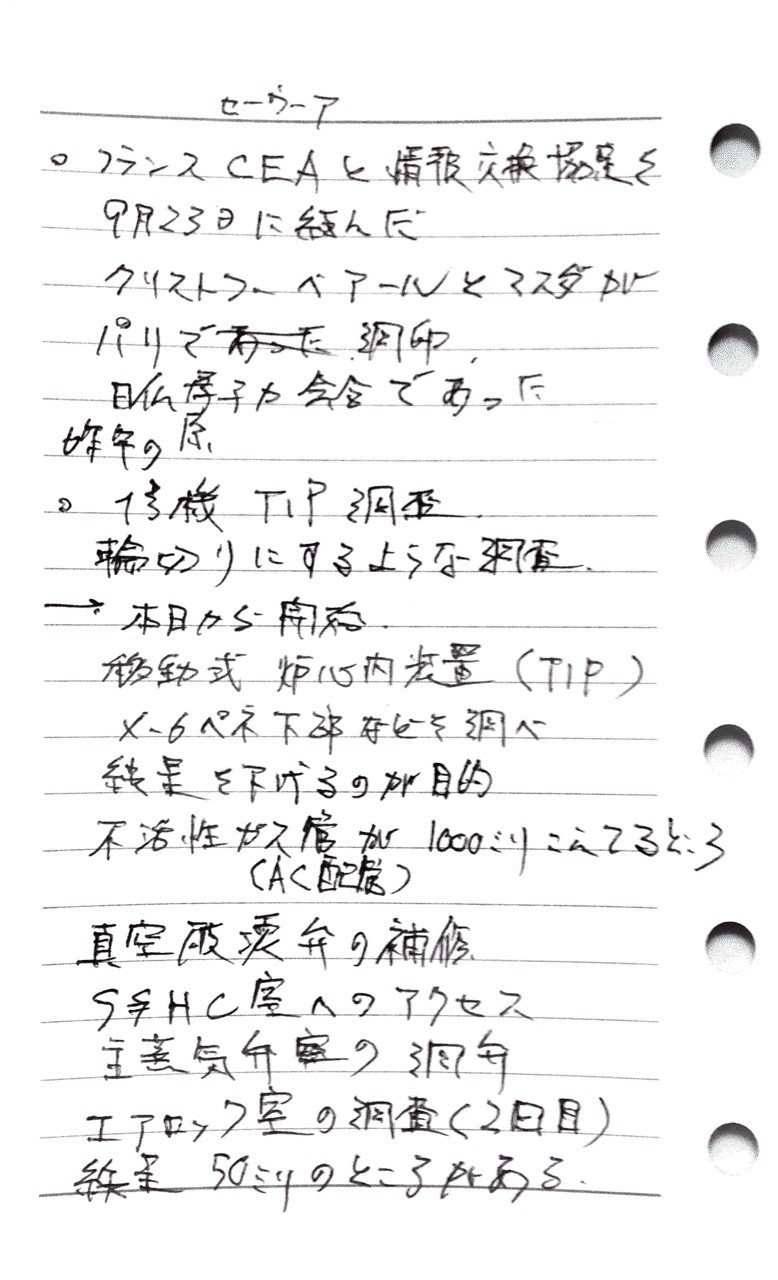 セーウーア
○ フランス CEAと情報交換協定を
9月23日に組んだ
クリストフ・ベアールとマスダが
パリであった 調印、
日仏原子力会合であった
昨年の原、
○ 1号機 TIP 調査.
輪切りにするような調査.
→ 本日から開始.
移動式 炉心内装置 (TIP)
X-6ペネ下部などを調べ
線量を下げるのが目的
不活性ガス管が 1000ミリこえてるところ
(AC配管)
真空破壊弁の補修
HC室へのアクセス
主蒸気弁室の調弁
エアロック室の調査(2日目)
線量 50ミリのところがある.